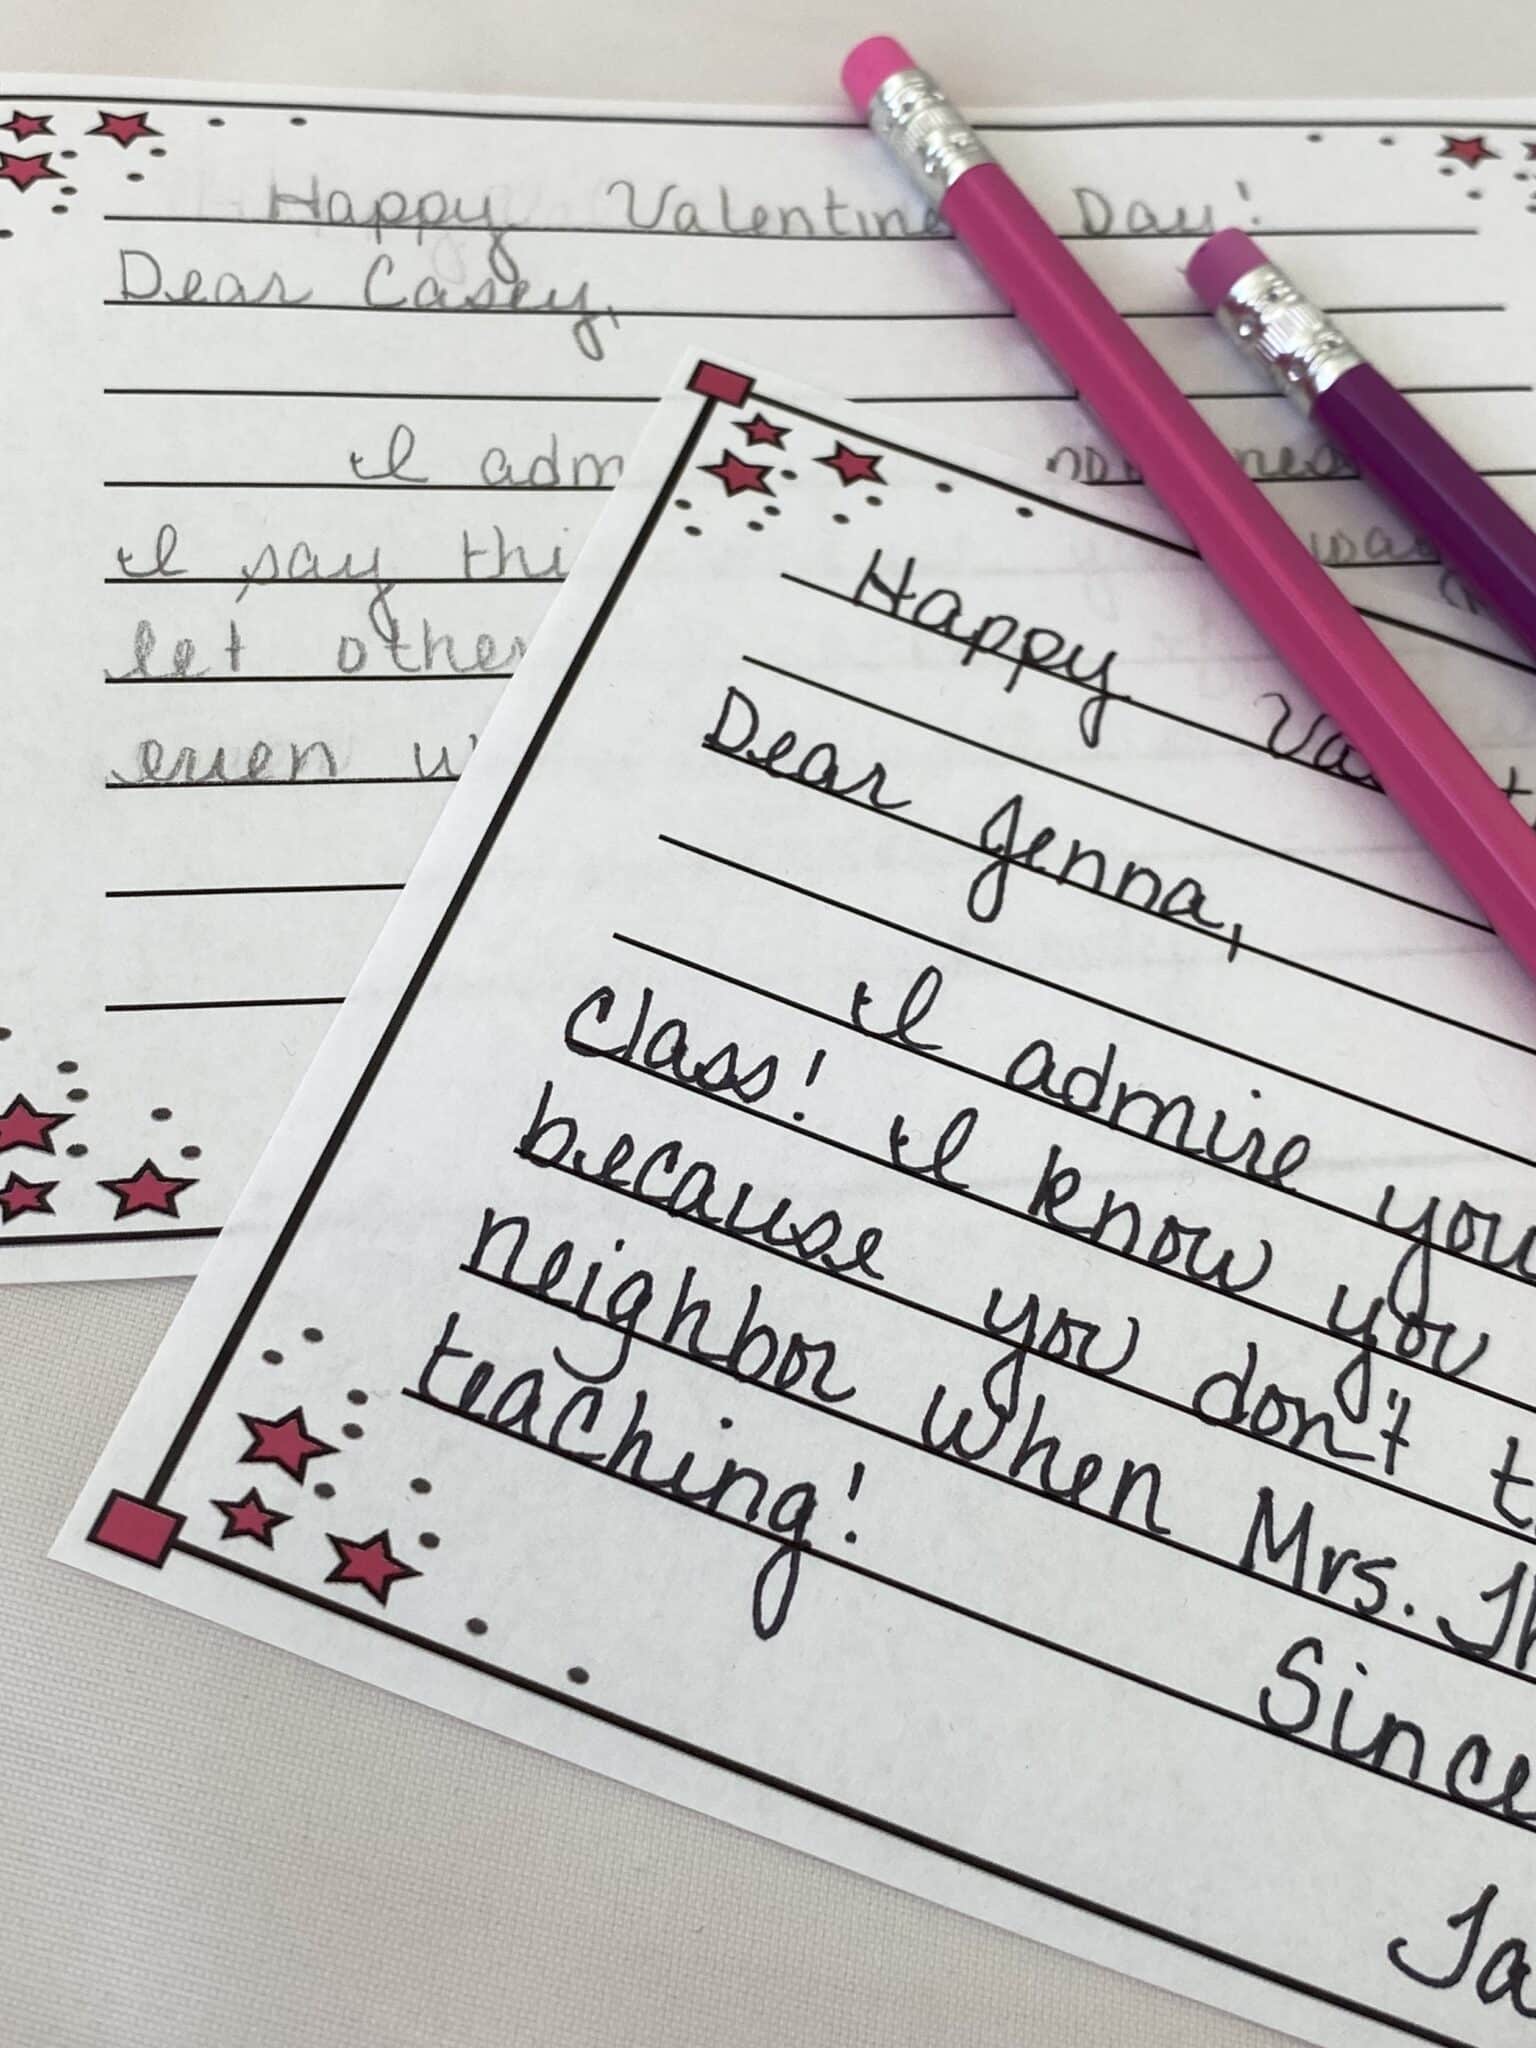 Happy Valentine Day!
Dear Casey,
I adm
I say thi
let other
even w
Happy Va
Dear Jenna,
I admire you
class! I know you
because you don't t
neighbor when Mrs. Th
teaching!
Since
Ta